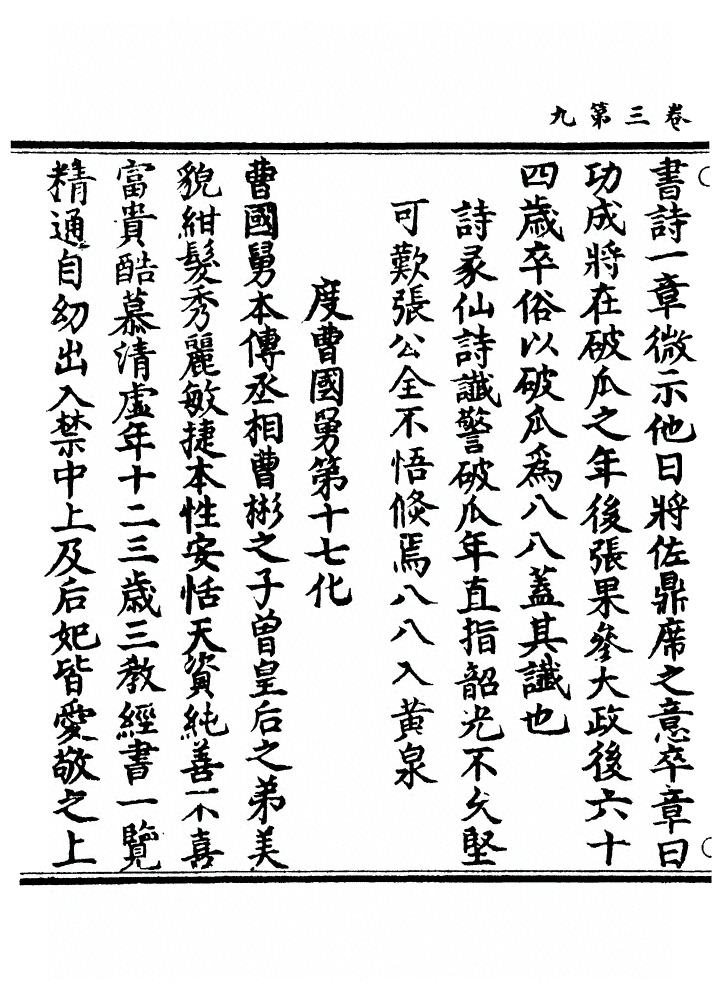 卷三第九
書詩一章微示他日將佐鼎席之意卒章曰
功成將在破瓜之年後張果參大政後六十
四歲卒俗以破瓜為八八蓋其讖也
詩彖仙詩讖警破瓜年直指韶光不久堅
可歎張公全不悟倏焉八八入黃泉
度曹國舅第十七化
曹國舅本傳丞相曹彬之子曾皇后之弟美
貌紺髮秀麗敏捷本性安恬天資純善不喜
富貴酷慕清虛年十二三歲三教經書一覽
精通自幼出入禁中上及后妃皆愛敬之上